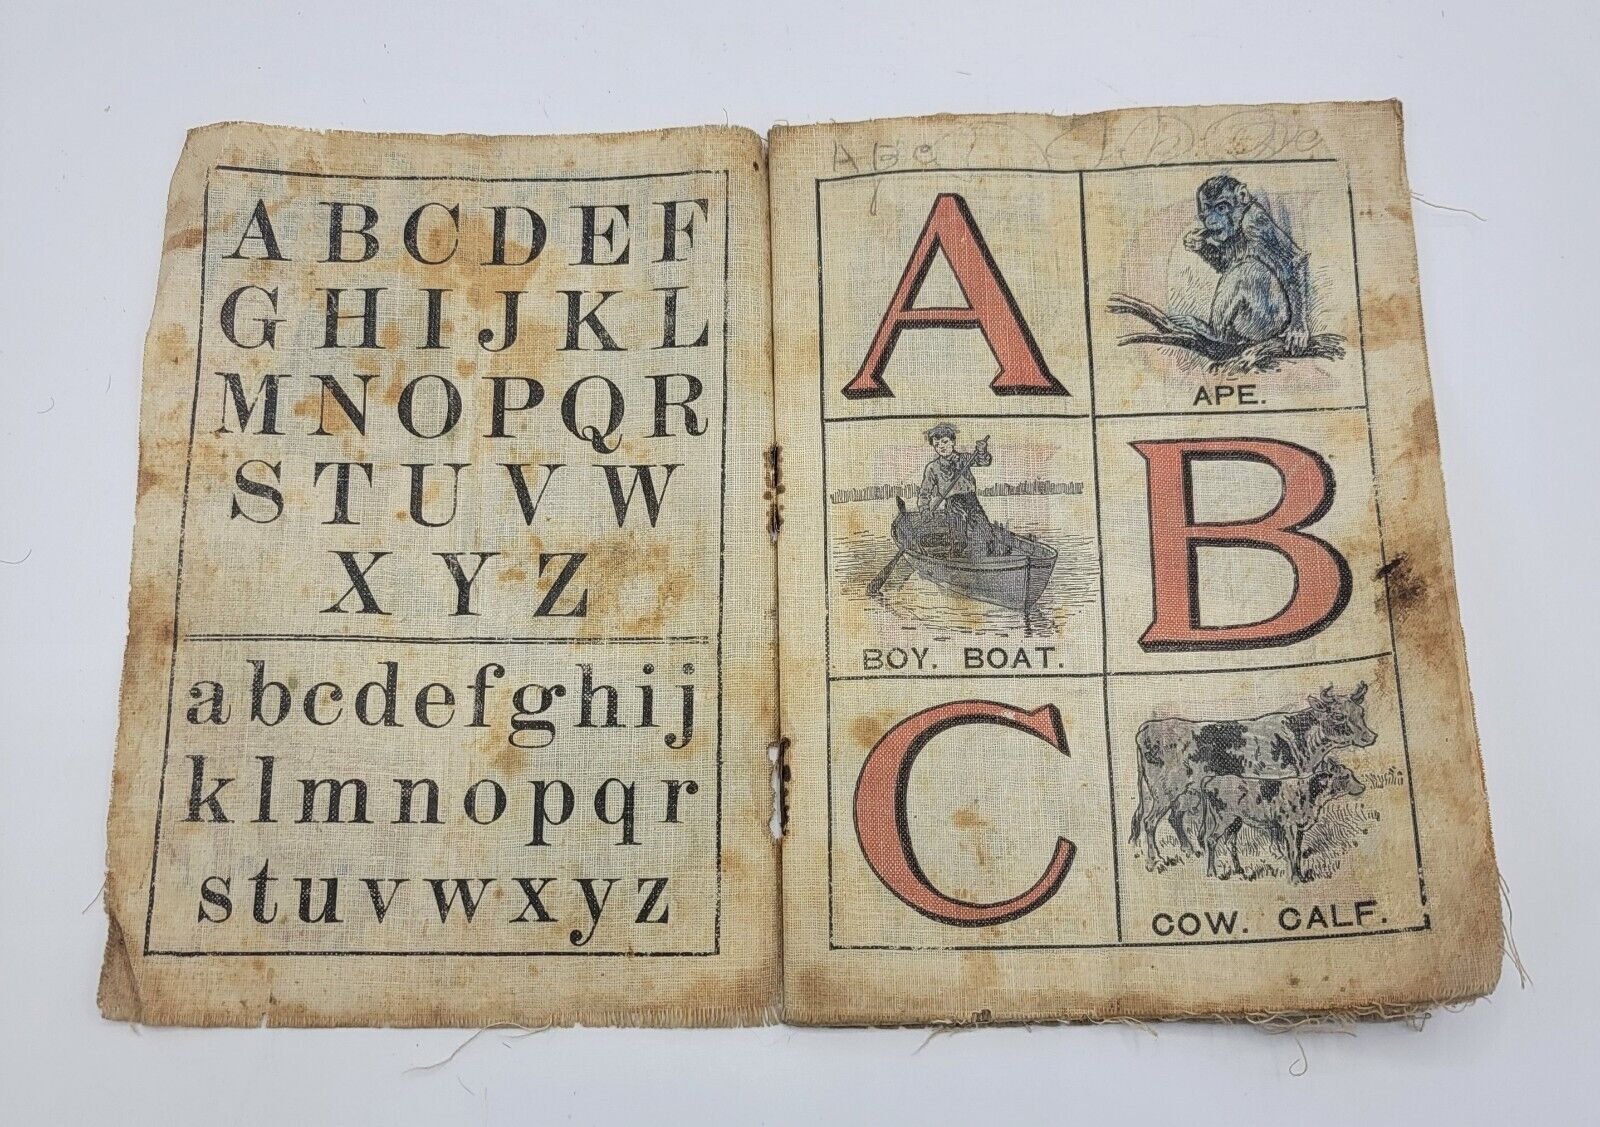 A B C D E F
G H I J K L
M N O P Q R
S T U V W
X Y Z
a b c d e f g h i j
k l m n o p q r
s t u v w x y z
A B C
A
APE.
BOY. BOAT.
B
C
COW. CALF.